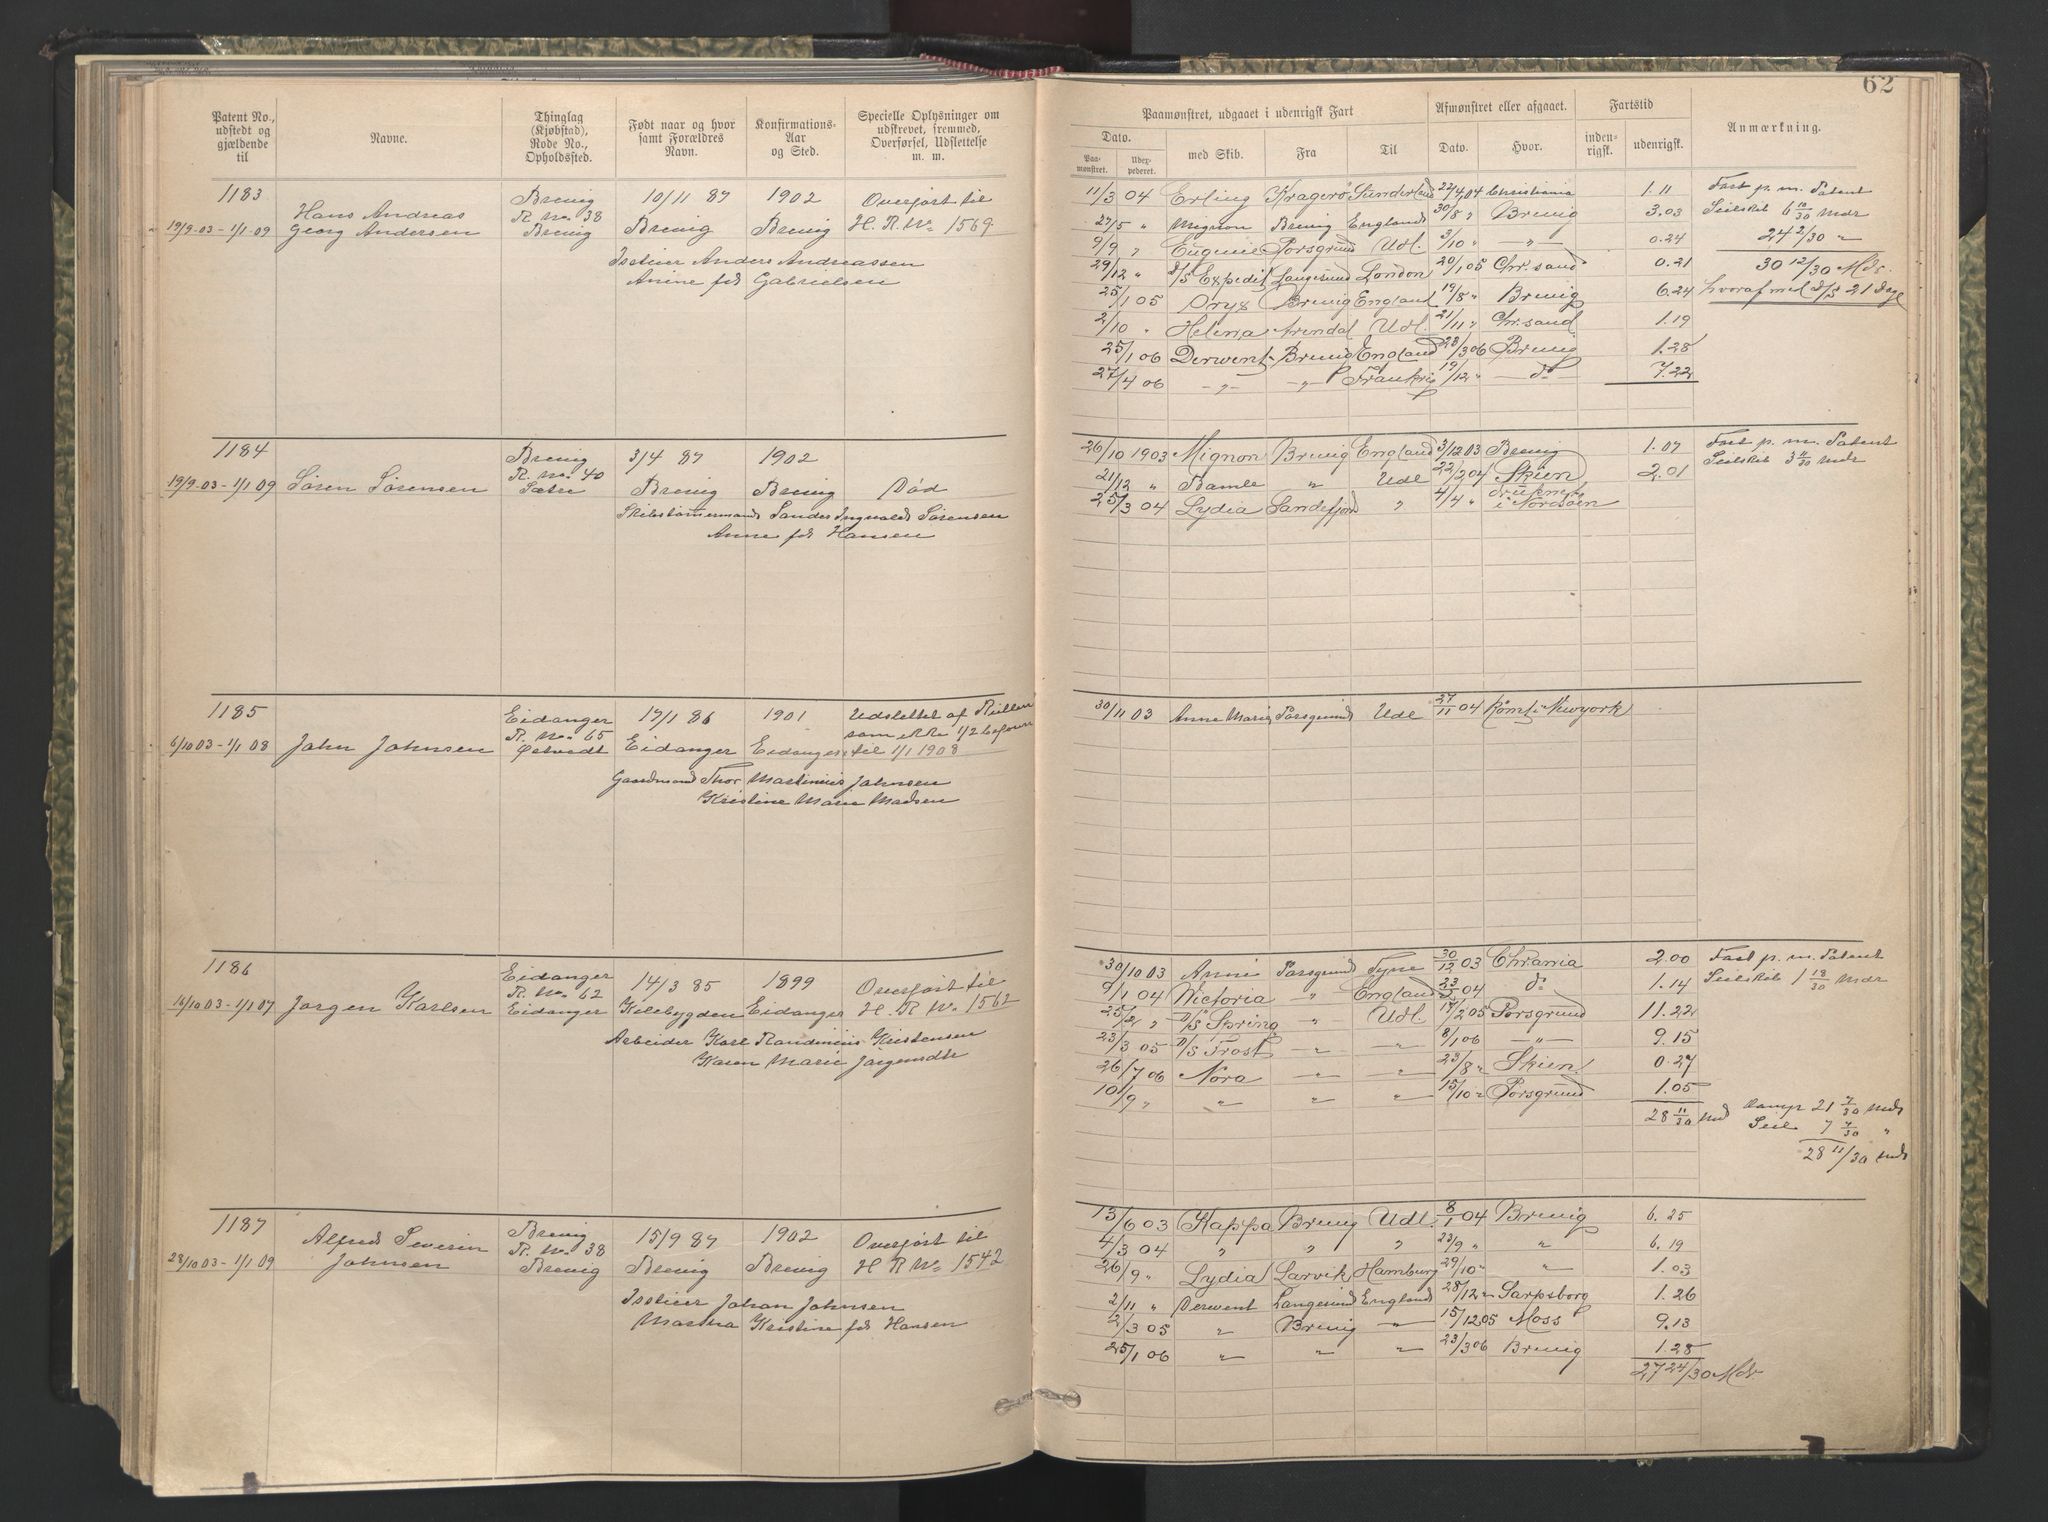 62
Patent No., udstedt og gjældende til
Navne.
Thinglag (Kjøbstad), Rode No., Opholdssted.
Født naar og hvor samt Forældres Navn.
Konfirmations- Aar og Sted.
Specielle Oplysninger om udskrevet, fremmed, Overførsel, Udslettelse m. m.
Paamønstret, udgaaet i udenrigsk Fart
Afmønstret eller afgaaet.
Fartstid
Anmærkning.
Dato.
Paa- mønstret.
Udex- pederet.
med Skib.
Fra
Til
Dato.
Hvor.
inden- rigsk.
udenrigsk.
1183 Brevig 10/11 87 1902 Overført til
Hans Andreas R. No. 38
19/9-03 - 1/1 09 Georg Andersen Brevig Brevig Brevig H. R. No 1569
Anders Andreassen
Anine fdt Gabrielsen
11/3 04 Erling Kragerø Sunderland 22/4 04 Christiania 1.11 Fart p. m. Patent
27/5 " Mignon Brevig England 30/8 " Brevig 3.03 Seilskib 6 10/30 Mdr
9/9 " Eugenie Porsgrund Udl. 3/10 " —"— 0.24 24 2/30 "
29/12 " D/S Expedit Langesund London 20/1 05 Chr.sand 0.21 30 12/30 Mdr.
25/1 05 Oryx Brevig England 19/8 " Brevig 6.24 hvoraf med D/S 21 dage
2/10 " Helena Arendal Udl. 21/11 " Chr.sand 1.19
25/1 06 Derwent Brevig England 23/3 06 Brevig 1.28
27/4 06 —"— —"— Frankrig 19/12 " — do 7.22
1184 Brevig 3/4 87 1902
R. No. 40
19/9-03 - 1/1 09 Søren Sørensen Sætre Brevig Brevig Død
Skibstømmermand Sander Ingvald Sørensen
Anne fdt Hansen
26/10 1903 Mignon Brevig England 3/12 03 Brevig 1.07 Fart p. m. Patent
21/12 " Bamle " Udl 22/2 04 Skien 2.01 Seilskib 3 11/30 Mdr
25/3 04 Lydia Sandefjord " 4/4 " druknet i Nordsøen
1185 Eidanger 17/1 86 1901 Udslettet af Rullen
R. No. 65 som ikke 1/2 befaren
6/10 03 - 1/1 08 John Johnsen Eidanger Eidanger til 1/1 1908
Gaardmand Thor Martinius Johnsen
Kristine Marie Madsen
30/11 03 Anne Marie Porsgrund Udl 27/11 04 Rømt i Newyork
1186 Eidanger 14/3 85 1899 Overført til
R. No. 62
16/10 03 - 1/1 07 Jørgen Karlsen Eidanger Kilebygden Eidanger H. R No. 1562
Arbeider Karl Randinius Kristensen
Karen Marie Jørgensdtr
30/10 03 Anni Porsgrund Tyne 30/12 03 Chrania 2.00 Fart p. m. Patent
9/1 04 Victoria " England 23/2 04 do 1.14 Seilskib 1 18/30 Mdr
25/2 " D/S Spring " Udl. 17/2 05 Porsgrund 11.22
23/3 05 D/S Frost —"— —"— 8/1 06 —"— 9.15
26/7 06 Nora —"— —"— 23/8 " Skien 0.27
10/9 " —"— " " 15/10 " Porsgrund 1.05
28 11/30 Md Damp 21 7/30 Mdr
Seil 7 7/30 "
28 11/30 Mdr
1187 Brevig 15/9 87 1902 Overført til
Alfred Severin R. No. 38
28/10 03 - 1/1 09 Johnsen Brevig Brevig Brevig H R No. 1542
Johan Johnsen
Martha Kristine fdt Hansen
13/6 03 Kappa Brevig Udl. 8/1 04 Brevig 6.25
4/3 04 " " " 23/9 " " 6.19
26/9 " Lydia Larvik Hamburg 29/10 " " 1.03
2/11 " Derwent Langesund England 28/12 " Sarpsborg 1.26
2/3 05 " Brevig —"— 15/12 05 Moss 9.13
25/1 06 —"— —"— —"— 23/3 06 Brevig 1.28
27 24/30 Mdr